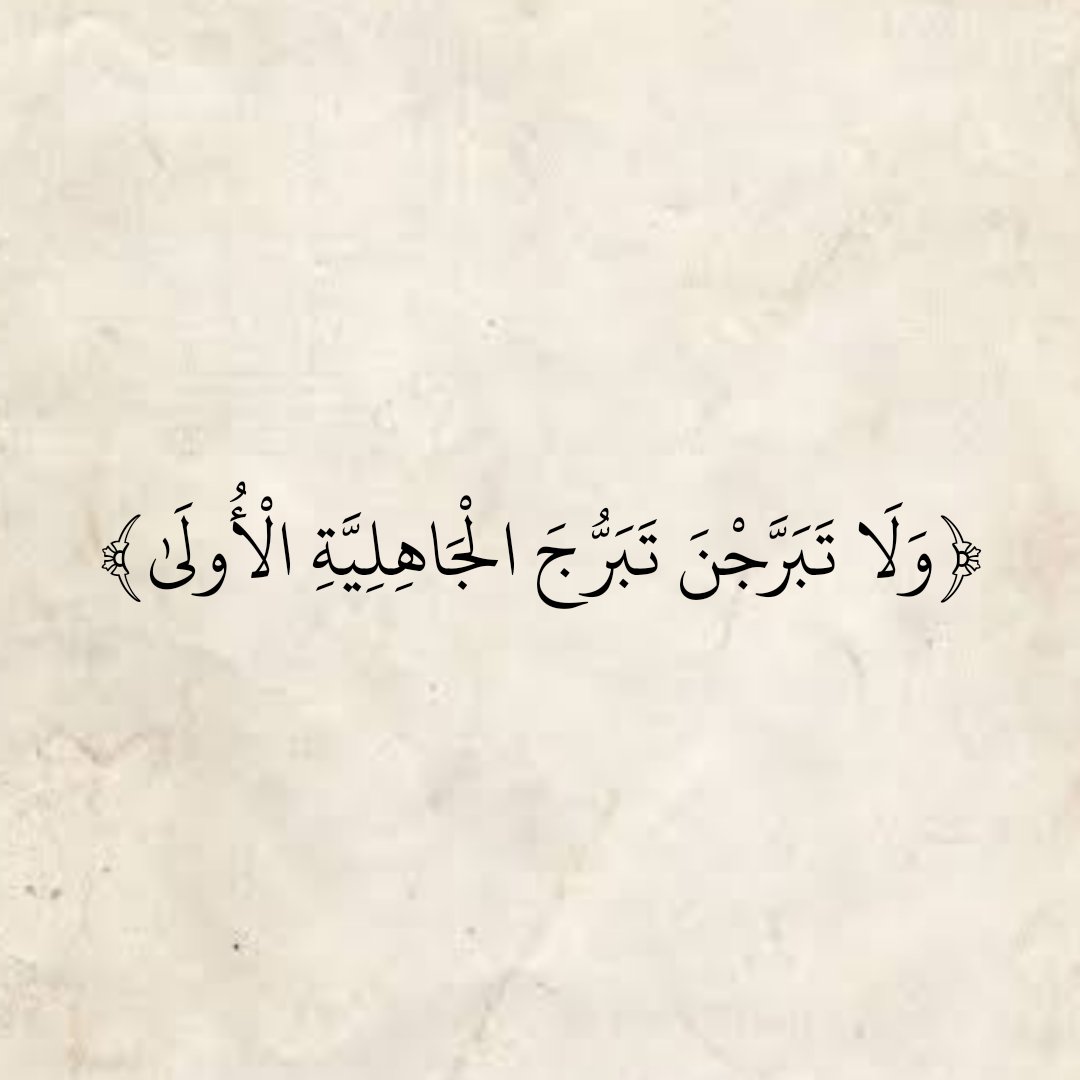 ﴿وَلَا تَبَرَّجْنَ تَبَرُّجَ الْجَاهِلِيَّةِ الْأُولَىٰ﴾